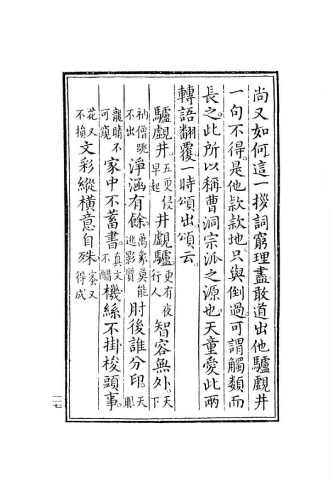 尚又如何這一拶詞窮理盡敢道出他驢覷井
一句不得是他款款地只與倒過可謂觸類而
長之此所以稱曹洞宗派之源也天童愛此兩
轉語翻覆一時頌出頌云
驢覷井五更侵早起井覷驢更有夜行人智容無外天下
衲僧跳不出淨涵有餘萬象莫能逃影質肘後誰分印眼
龍睛不可窺家中不蓄書真文不醋機絲不掛梭頭事
花又不損文彩縱橫意自殊蜜又得成
一一七